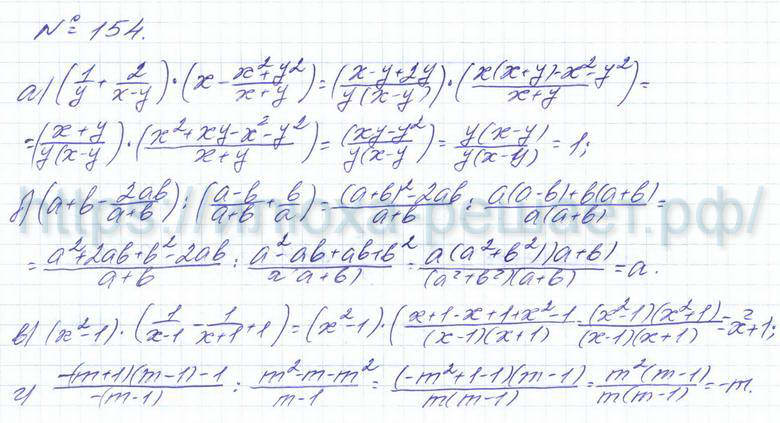 № 154.
а) (1/y + 2/(x-y)) · (x - (x²+y²)/(x+y)) = ((x-y+2y)/(y(x-y))) · ((x(x+y)-x²-y²)/(x+y)) =
= ((x+y)/(y(x-y))) · ((x²+xy-x²-y²)/(x+y)) = (xy-y²)/(y(x-y)) = y(x-y)/(y(x-y)) = 1;
б) (a+b - 2ab/(a+b)) : ((a-b)/(a+b) + b/a) = ((a+b)²-2ab)/(a+b) : (a(a-b)+b(a+b))/(a(a+b)) =
= (a²+2ab+b²-2ab)/(a+b) : (a²-ab+ab+b²)/(a(a+b)) = (a(a²+b²)(a+b))/((a²+b²)(a+b)) = a.
в) (x²-1) · (1/(x-1) - 1/(x+1) + 1) = (x²-1) · ((x+1-x+1+x²-1)/((x-1)(x+1)) = ((x²-1)(x²+1))/((x-1)(x+1)) = x²+1;
г) (-(m+1)(m-1)-1)/(-(m-1)) : (m²-m-m²)/(m-1) = ((-m²+1-1)(m-1))/(m(m-1)) = (m²(m-1))/(m(m-1)) = -m.